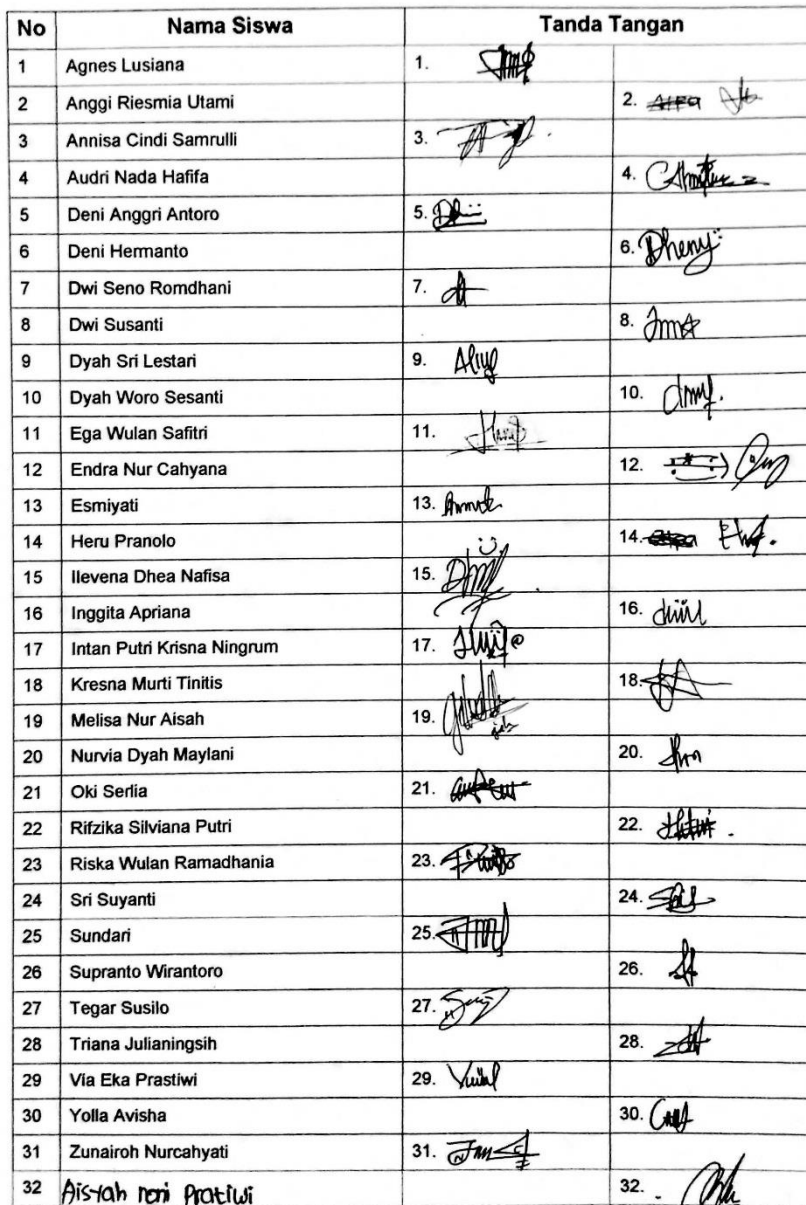 No Nama Siswa Tanda Tangan
1 Agnes Lusiana 1.
2 Anggi Riesmia Utami 2.
3 Annisa Cindi Samrulli 3.
4 Audri Nada Hafifa 4.
5 Deni Anggri Antoro 5.
6 Deni Hermanto 6. Dheny
7 Dwi Seno Romdhani 7.
8 Dwi Susanti 8.
9 Dyah Sri Lestari 9.
10 Dyah Woro Sesanti 10.
11 Ega Wulan Safitri 11.
12 Endra Nur Cahyana 12.
13 Esmiyati 13.
14 Heru Pranolo 14.
15 Ilevena Dhea Nafisa 15.
16 Inggita Apriana 16.
17 Intan Putri Krisna Ningrum 17.
18 Kresna Murti Tinitis 18.
19 Melisa Nur Aisah 19.
20 Nurvia Dyah Maylani 20.
21 Oki Serlia 21.
22 Rifzika Silviana Putri 22.
23 Riska Wulan Ramadhania 23.
24 Sri Suyanti 24.
25 Sundari 25.
26 Supranto Wirantoro 26.
27 Tegar Susilo 27.
28 Triana Julianingsih 28.
29 Via Eka Prastiwi 29.
30 Yolla Avisha 30.
31 Zunairoh Nurcahyati 31.
32 Aisyah noni Pratiwi 32.